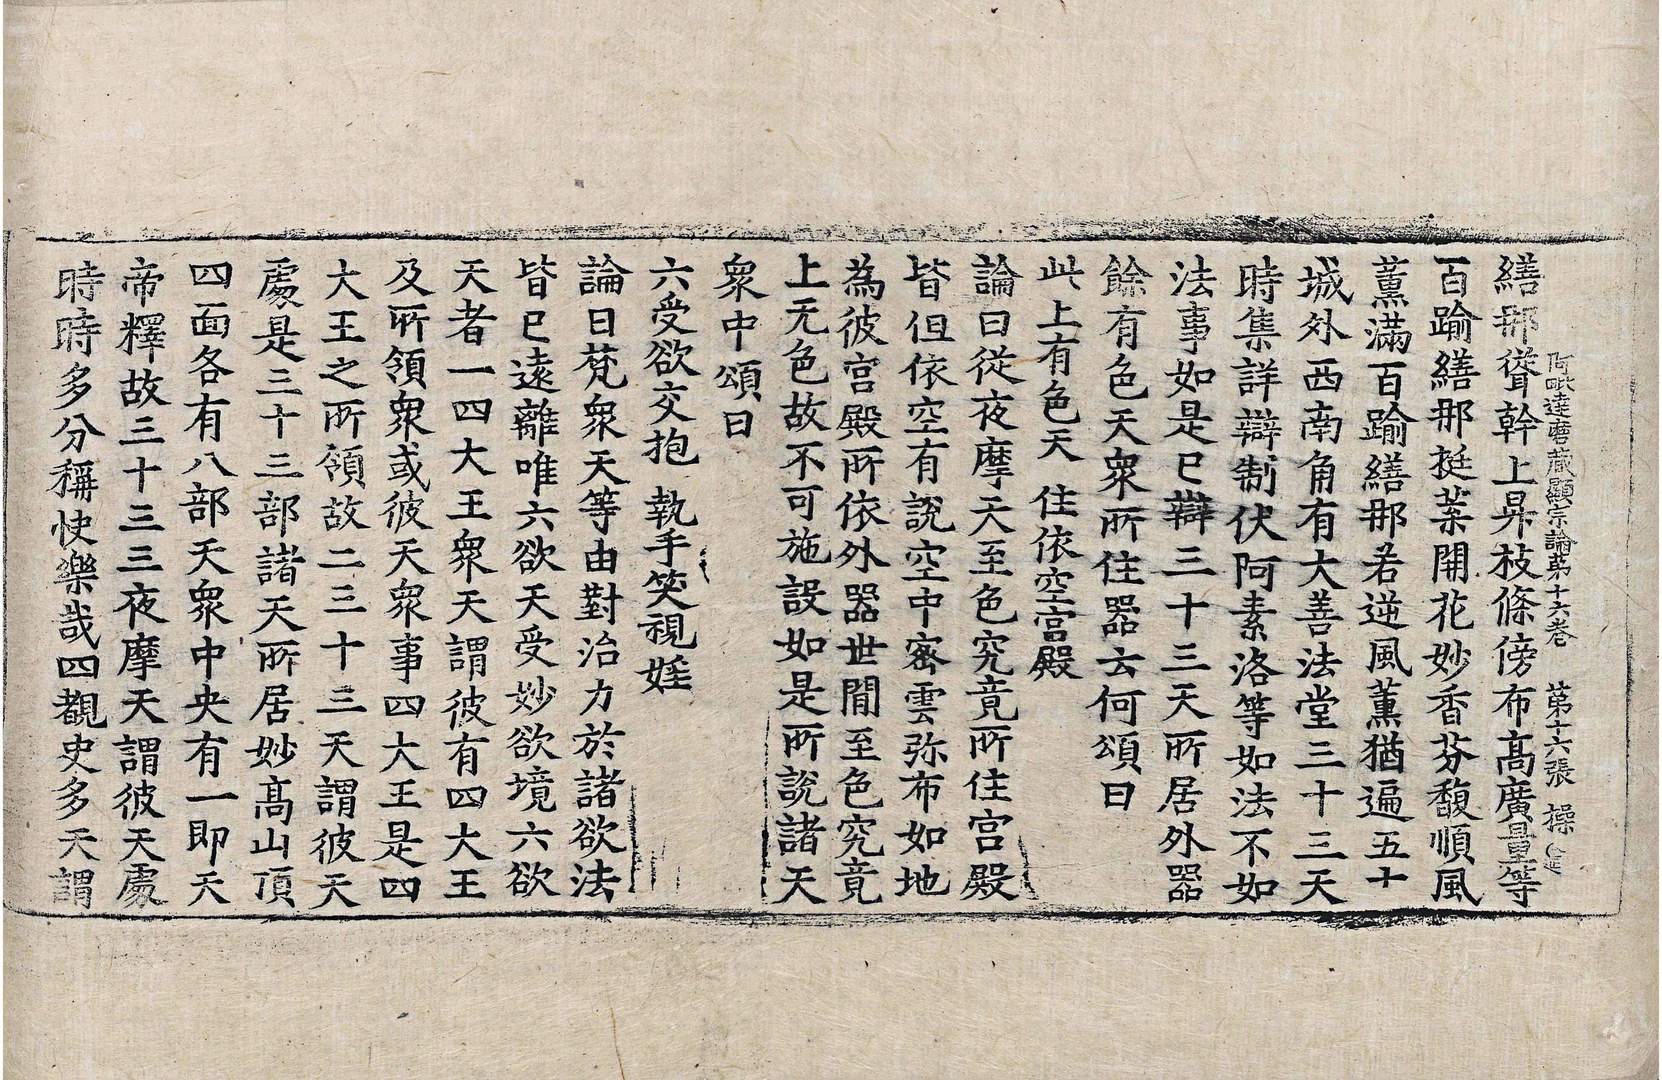 阿毗達磨藏顯宗論第十六卷 第十六張 操
繕那聳幹上昇枝條傍布高廣量等
百踰繕那挺葉開花妙香芬馥順風
薰滿百踰繕那若逆風薰猶遍五十
城外西南角有大善法堂三十三天
時集詳辯制伏阿素洛等如法不如
法事如是已辯三十三天所居外器
餘有色天衆所住器云何頌曰
此上有色天 住依空宮殿
論曰從夜摩天至色究竟所住宮殿
皆但依空有說空中密雲弥布如地
為彼宮殿所依外器世間至色究竟
上无色故不可施設如是所說諸天
衆中頌曰
六受欲交抱 執手笑視婬
論曰梵衆天等由對治力於諸欲法
皆已遠離唯六欲天受妙欲境六欲
天者一四大王衆天謂彼有四大王
及所領衆或彼天衆事四大王是四
大王之所領故二三十三天謂彼天
處是三十三部諸天所居妙高山頂
四面各有八部天衆中央有一即天
帝釋故三十三三夜摩天謂彼天處
時時多分稱快樂哉四覩史多天謂